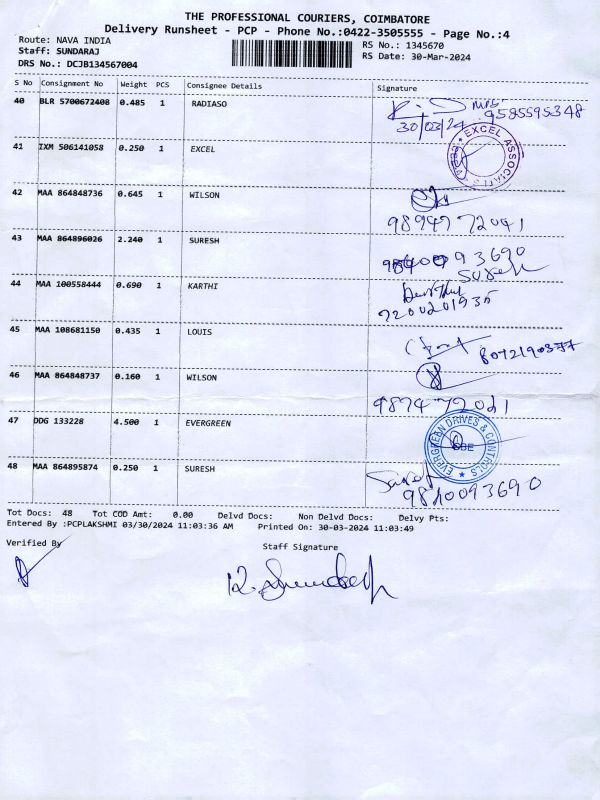 THE PROFESSIONAL COURIERS, COIMBATORE
Delivery Runsheet - PCP - Phone No.:0422-3505555 - Page No.:4
Route: NAVA INDIA
RS No.: 1345670
Staff: SUNDARAJ
RS Date: 30-Mar-2024
DRS No.: DCJB134567004
S No Consignment No Weight PCS Consignee Details Signature
40 BLR 5700672408 0.485 1 RADIASO
9585595348
30/03/24
41 IXM 506141058 0.250 1 EXCEL
EXCEL ASSOCIATES
42 MAA 864848736 0.645 1 WILSON
9894772041
43 MAA 864896026 2.240 1 SURESH
93690
Suresh
44 MAA 100558444 0.690 1 KARTHI
7200201935
45 MAA 108681150 0.435 1 LOUIS
8072190377
46 MAA 864848737 0.160 1 WILSON
9874772021
47 DDG 133228 4.500 1 EVERGREEN
EVERGREEN DRIVES & CONTROLS
CBE
48 MAA 864895874 0.250 1 SURESH
Suresh
9810093690
Tot Docs: 48 Tot COD Amt: 0.00 Delvd Docs: Non Delvd Docs: Delvy Pts:
Entered By :PCPLAKSHMI 03/30/2024 11:03:36 AM Printed On: 30-03-2024 11:03:49
Verified By
Staff Signature